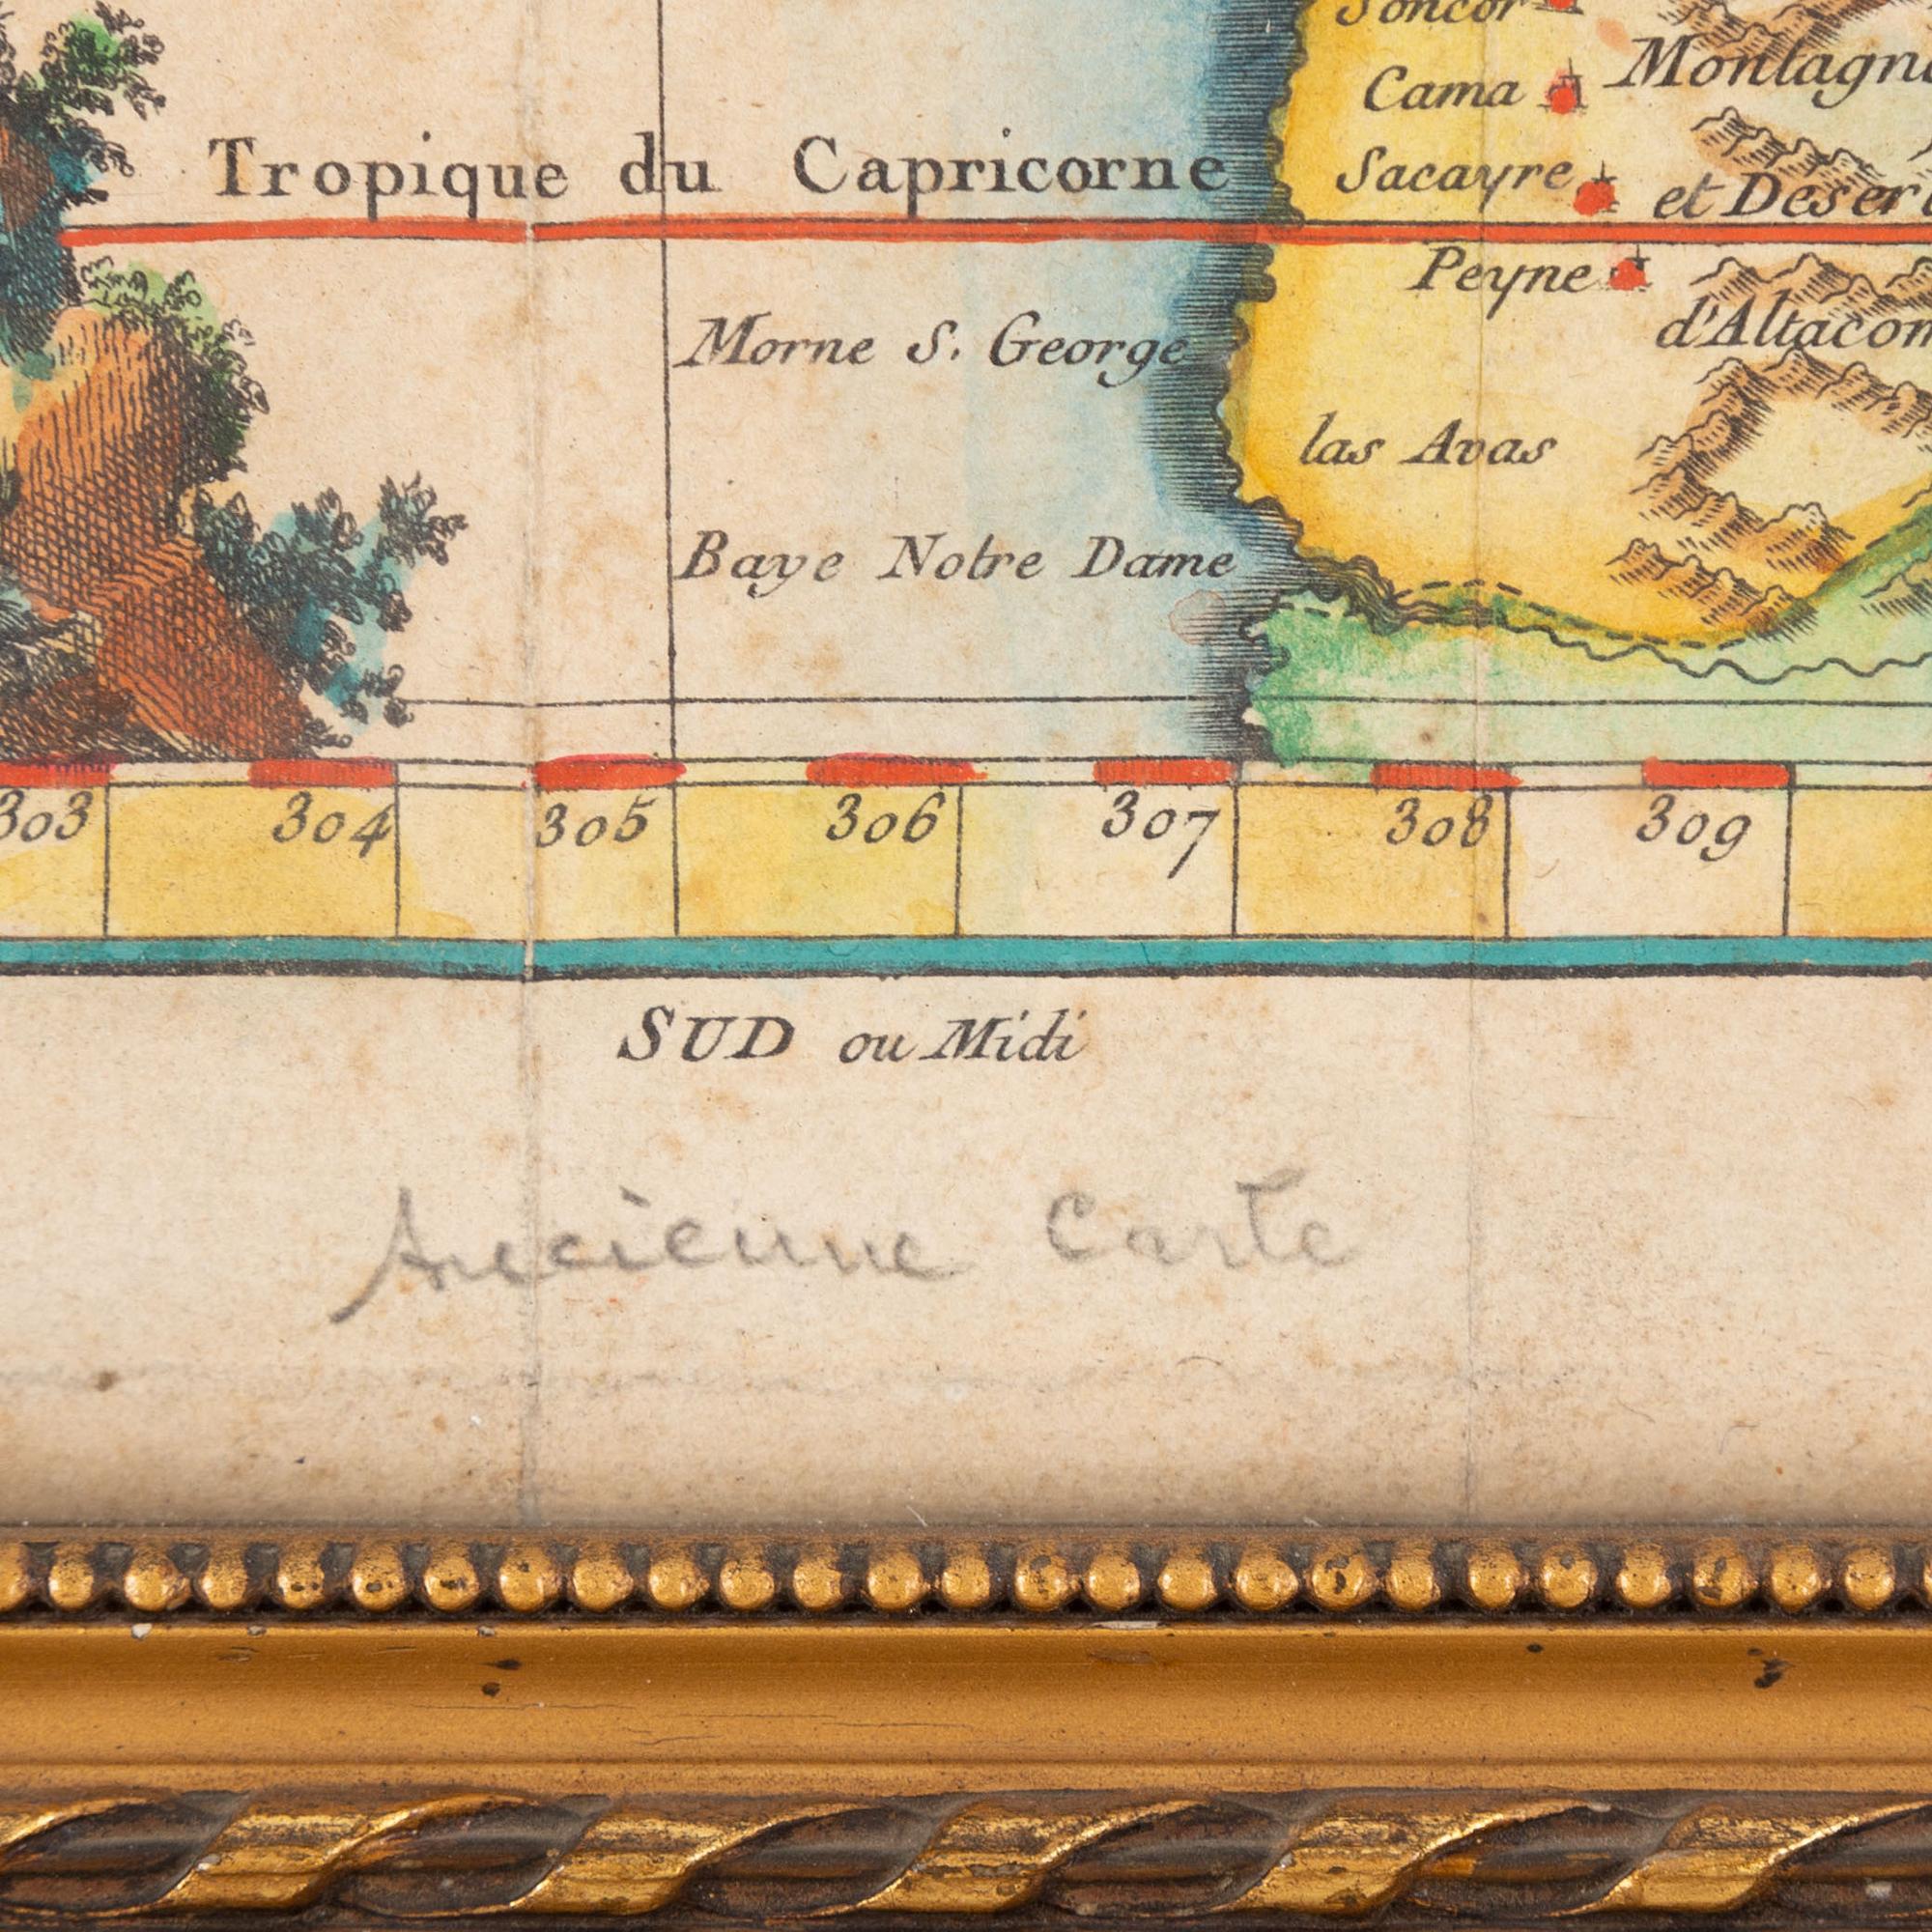 Soncor
Cama
Montagn
Tropique du Capricorne
Sacayre
et Desert
Peyne
d'Altacom
Morne S. George
las Avas
Baye Notre Dame
303 304 305 306 307 308 309
SUD ou Midi
Ancienne Carte